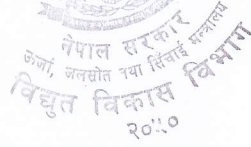 नेपाल सरकार
ऊर्जा, जलस्रोत तथा सिंचाई मन्त्रालय
विद्युत विकास विभाग